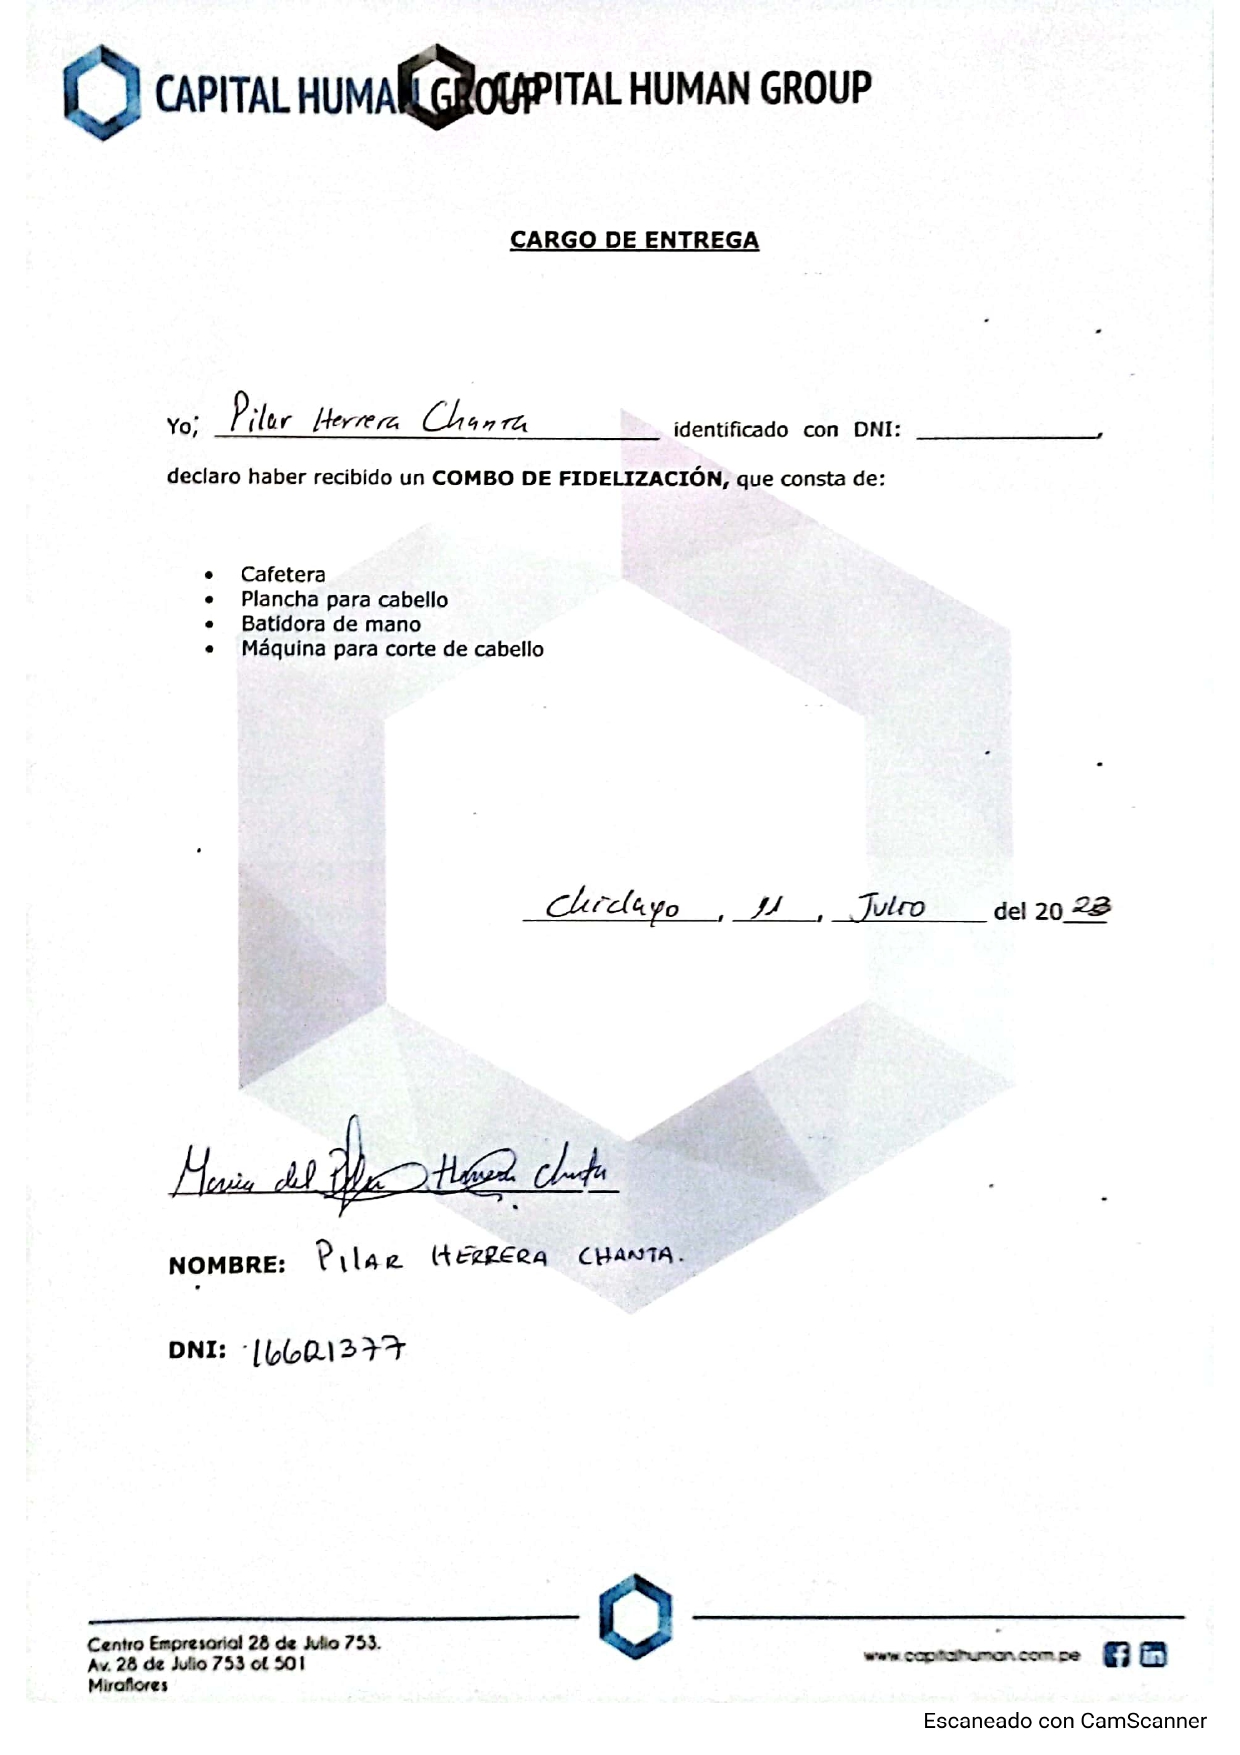 CAPITAL HUMAN GROUP CAPITAL HUMAN GROUP
CARGO DE ENTREGA
Yo; Pilar Herrera Chanta identificado con DNI: ,
declaro haber recibido un COMBO DE FIDELIZACIÓN, que consta de:
• Cafetera
• Plancha para cabello
• Batidora de mano
• Máquina para corte de cabello
Chiclayo , 11 , Julio del 2023
Maria del Pilar Herrera Chanta
NOMBRE: PILAR HERRERA CHANTA.
DNI: 16621377
Centro Empresarial 28 de Julio 753.
Av. 28 de Julio 753 of. 501
Miraflores
www.capitalhuman.com.pe
Escaneado con CamScanner